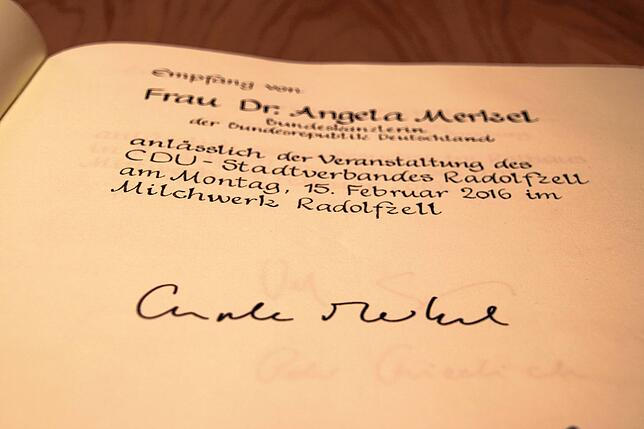 Empfang von
Frau Dr. Angela Merkel
Bundeskanzlerin
der Bundesrepublik Deutschland
anlässlich der Veranstaltung des
CDU-Stadtverbandes Radolfzell
am Montag, 15. Februar 2016 im
Milchwerk Radolfzell
Angela Merkel